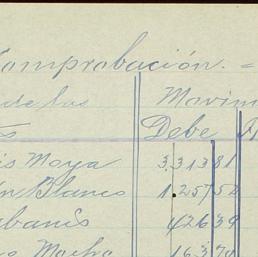 Comprobación. =
de los Movim
s Debe H
is Moya 3.313 81
n Blanco 1.257 52
abanés 426 39
os Macho 163 70